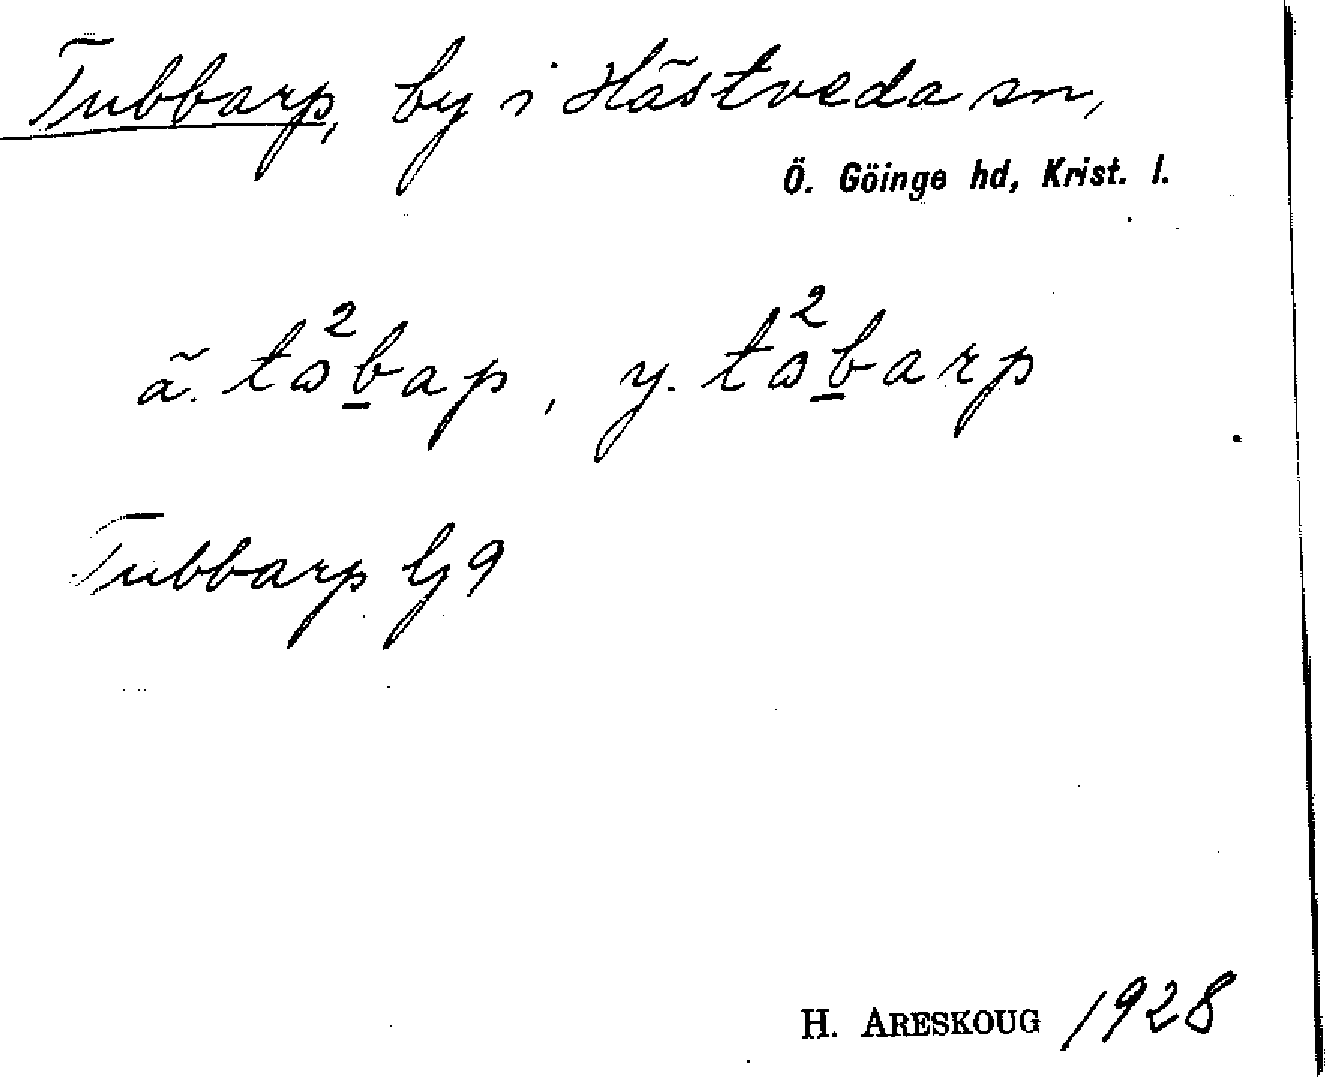 Tubbarp, by i Hästveda sn,
Ö. Göinge hd, Krist. l.
ä. tɷ²b̲ap, y. tɷ²b̲arp
Tubbarp G 9
H. ARESKOUG 1928